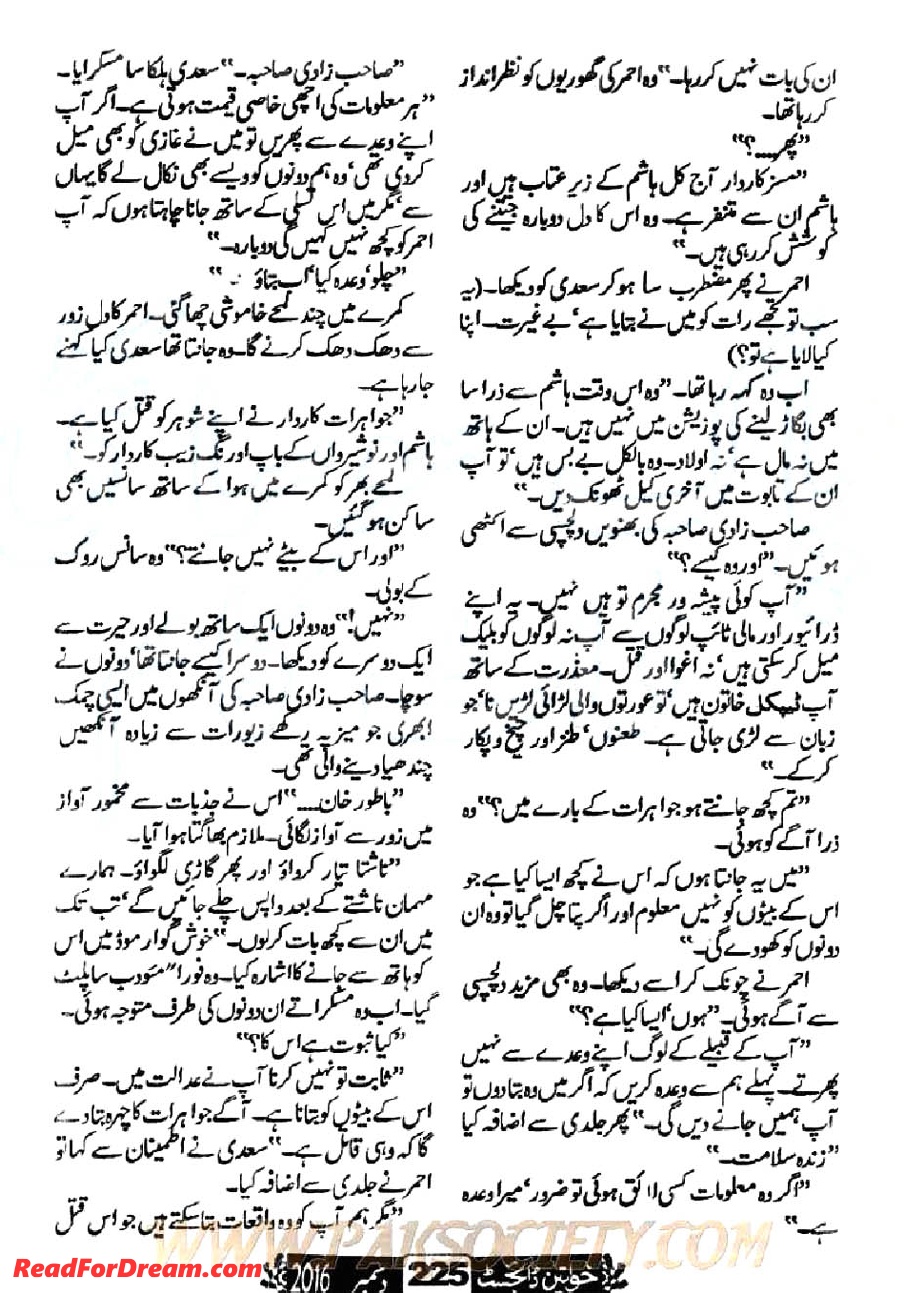 ان کی بات نہیں کر رہا۔“ وہ احمر کی گھوریوں کو نظر انداز
کر رہا تھا۔
”پھر....؟“
”مسز کاردار آج کل ہاشم کے زیر عتاب ہیں اور
ہاشم ان سے متنفر ہے۔ وہ اس کا دل دوبارہ جیتنے کی
کوشش کر رہی ہیں۔“
احمر نے پھر مضطرب سا ہو کر سعدی کو دیکھا۔ (یہ
سب تو تجھے رات کو میں نے بتایا ہے‘ بے غیرت۔ اپنا
کیا لایا ہے تو؟)
اب وہ کہہ رہا تھا۔ ”وہ اس وقت ہاشم سے ذرا سا
بھی بگاڑ لینے کی پوزیشن میں نہیں ہیں۔ ان کے ہاتھ
میں نہ مال ہے‘ نہ اولاد۔ وہ بالکل بے بس ہیں‘ تو آپ
ان کے تابوت میں آخری کیل ٹھونک دیں۔“
صاحب زادی صاحبہ کی بھنویں دلچسپی سے اکٹھی
ہوئیں۔ ”اور وہ کیسے؟“
”آپ کوئی پیشہ ور مجرم تو ہیں نہیں۔ یہ اپنے
ڈرائیور اور مالی ٹائپ لوگوں سے آپ نہ لوگوں کو بلیک
میل کر سکتی ہیں‘ نہ اغوا اور قتل۔ معذرت کے ساتھ
آپ ٹیپیکل خاتون ہیں‘ تو عورتوں والی لڑائی لڑیں نا‘ جو
زبان سے لڑی جاتی ہے۔ طعنوں‘ طنز اور چیخ و پکار
کر کے۔“
”تم کچھ جانتے ہو جواہرات کے بارے میں؟“ وہ
ذرا آگے کو ہوئی۔
”میں یہ جانتا ہوں کہ اس نے کچھ ایسا کیا ہے جو
اس کے بیٹوں کو نہیں معلوم اور اگر پتا چل گیا تو وہ ان
دونوں کو کھو دے گی۔“
احمر نے چونک کر اسے دیکھا۔ وہ بھی مزید دلچسپی
سے آگے ہوئی۔ ”ہوں‘ ایسا کیا ہے؟“
”آپ کے قبیلے کے لوگ اپنے وعدے سے نہیں
پھرتے۔ پہلے ہم سے وعدہ کریں کہ اگر میں وہ بتا دوں تو
آپ ہمیں جانے دیں گی۔“ پھر جلدی سے اضافہ کیا
”زندہ سلامت۔“
”اگر وہ معلومات کسی لائق ہوئی تو ضرور‘ میرا وعدہ
ہے۔“
”صاحب زادی صاحبہ۔“ سعدی ہلکا سا مسکرایا۔
”ہر معلومات کی اچھی خاصی قیمت ہوتی ہے۔ اگر آپ
اپنے وعدے سے پھریں تو میں نے غازی کو بھی میل
کر دی تھی‘ وہ ہم دونوں کو ویسے بھی نکال لے گا یہاں
سے‘ مگر میں اس تسلی کے ساتھ جانا چاہتا ہوں کہ آپ
احمر کو کچھ نہیں کہیں گی دوبارہ۔“
”چلو‘ وعدہ کیا‘ اب بتاؤ۔“
کمرے میں چند لمحے خاموشی چھا گئی۔ احمر کا دل زور
سے دھک دھک کرنے لگا۔ وہ جانتا تھا سعدی کیا کہنے
جا رہا ہے۔
”جواہرات کاردار نے اپنے شوہر کو قتل کیا ہے۔
ہاشم اور نوشیرواں کے باپ اورنگ زیب کاردار کو۔“
لمحے بھر کو کمرے میں ہوا کے ساتھ سانسیں بھی
ساکن ہو گئیں۔
”اور اس کے بیٹے نہیں جانتے؟“ وہ سانس روک
کے بولی۔
”نہیں!“ وہ دونوں ایک ساتھ بولے اور حیرت سے
ایک دوسرے کو دیکھا۔ دوسرا کیسے جانتا تھا‘ دونوں نے
سوچا۔ صاحب زادی صاحبہ کی آنکھوں میں ایسی چمک
ابھری جو میز پہ رکھے زیورات سے زیادہ آنکھیں
چندھیا دینے والی تھی۔
”باطور خان....“ اس نے جذبات سے مخمور آواز
میں زور سے آواز لگائی۔ ملازم بھاگتا ہوا آیا۔
”ناشتا تیار کرواؤ اور پھر گاڑی لگواؤ۔ ہمارے
مہمان ناشتے کے بعد واپس چلے جائیں گے‘ تب تک
میں ان سے کچھ بات کر لوں۔“ خوش گوار موڈ میں اس
کو ہاتھ سے جانے کا اشارہ کیا۔ وہ فورا“ مؤدب سا پلٹ
گیا۔ اب وہ مسکراتے ان دونوں کی طرف متوجہ ہوئی۔
”کیا ثبوت ہے اس کا؟“
”ثابت تو نہیں کرنا آپ نے عدالت میں۔ صرف
اس کے بیٹوں کو بتانا ہے۔ آگے جواہرات کا چہرہ بتا دے
گا کہ وہی قاتل ہے۔“ سعدی نے اطمینان سے کہا تو
احمر نے جلدی سے اضافہ کیا۔
”مگر ہم آپ کو وہ واقعات بتا سکتے ہیں جو اس قتل
WWW.PAKSOCIETY.COM
ReadForDream.com
خواتین ڈائجسٹ 225 دسمبر 2016